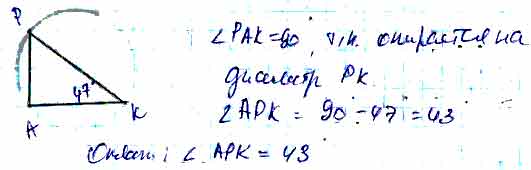 P
∠PAK=90°, т.к. опирается на
диаметр PK.
47°
∠APK = 90° - 47° = 43°
A
K
Ответ: ∠APK = 43